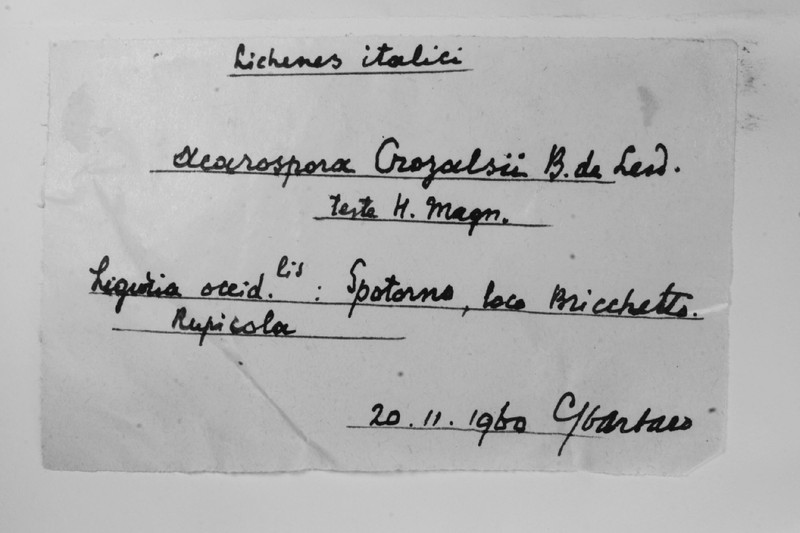 Lichenes italici
Acarospora Crozalsii B. de Lesd.
teste H. Magn.
Liguria occid.lis : Spotorno, loco Bricchetto.
Rupicola
20.11.1960 G Sbarbaro